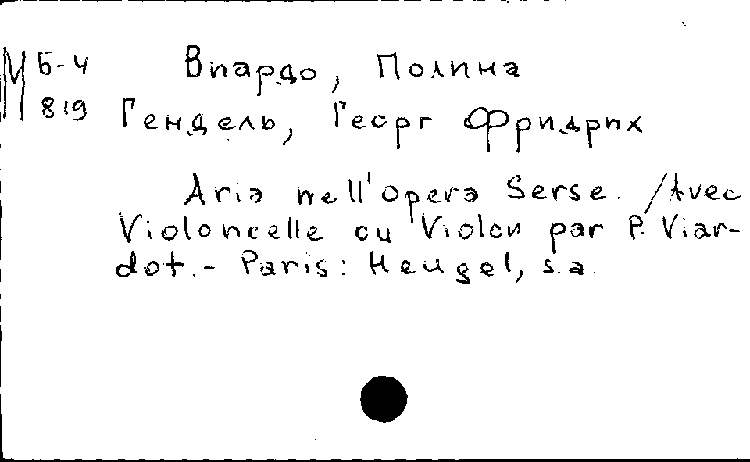 М Б-4 Виардо, Полина
819 Гендель, Георг Фридрих
Aria nell'opera Serse. /Avec
Violoncelle ou Violon par P. Viar-
dot.- Paris: Heugel, s.a.